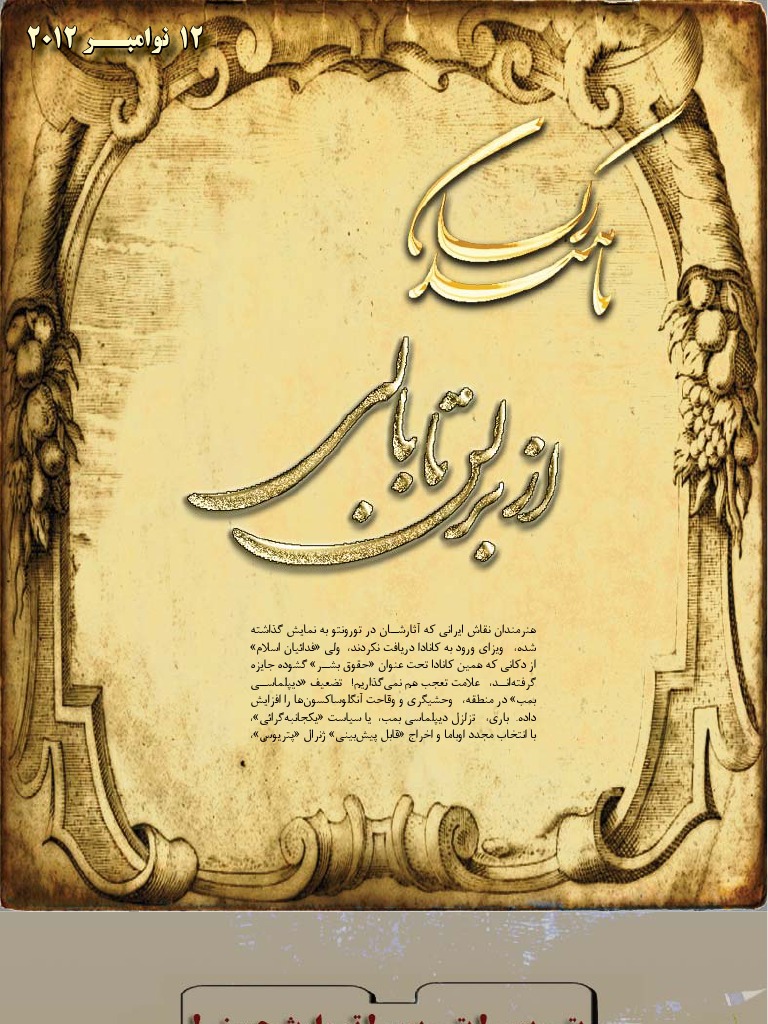 ۱۲ نوامبـــر ۲۰۱۲
از برلن تا بالی
هنرمندان نقاش ایرانی که آثارشــان در تورونتو به نمایش گذاشته
شده، ویزای ورود به کانادا دریافت نکردند، ولی «فدائیان اسلام»
از دکانی که همین کانادا تحت عنوان «حقوق بشــر» گشوده جایزه
گرفته‌انـد، علامت تعجب هم نمی‌گذاریم! تضعیف «دیپلماســی
بمب» در منطقه، وحشیگری و وقاحت آنگلوساکسون‌ها را افزایش
داده. باری، تزلزل دیپلماسی بمب، یا سیاست «یکجانبه‌گرائی»،
با انتخاب مجدد اوباما و اخراج «قابل پیش‌بینی» ژنرال «پتریوس»،